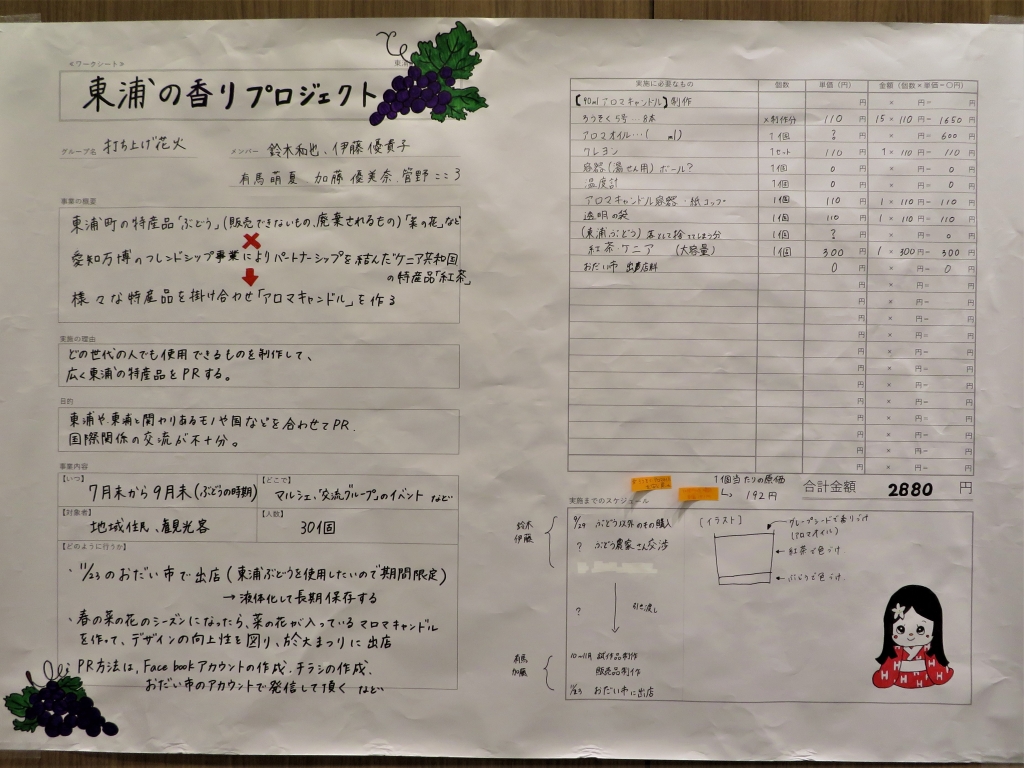 <ワークシート>
東浦の香りプロジェクト
グループ名 打ち上げ花火
メンバー 鈴木和也、伊藤優貴子
有馬萌夏 加藤優美奈、菅野こころ
事業の概要
東浦町の特産品「ぶどう」(販売できないもの、廃棄されるもの)「菜の花」など
愛知万博のフレンドシップ事業によりパートナーシップを結んだ"ケニア共和国
の特産品「紅茶」
様々な特産品を掛け合わせ「アロマキャンドル」を作る
実施の理由
どの世代の人でも使用できるものを制作して、
広く東浦の特産品をPRする。
目的
東浦や、東浦と関わりあるモノや国などを合わせてPR.
国際関係の交流が不十分。
事業内容
【いつ】
7月末から9月末(ぶどうの時期)
【どこで】
マルシェ、交流グループのイベント など
【対象者】
地域住民、観光客
【人数】
30個
【どのように行うか】
・11/23のおだい市で出店(東浦ぶどうを使用したいので期間限定)
→液体化して長期保存する
・春の菜の花のシーズンになったら、菜の花が入っているアロマキャンドル
を作って、デザインの向上性も図り、於大まつりに出店
・PR方法は、Facebookアカウントの作成、チラシの作成、
おだい市のアカウントで発信して頂く など
実施に必要なもの 個数 単価(円) 金額(個数×単価=〇円)
【90mlアロマキャンドル】制作 円 × 円= 円
ろうそく5号…8本 ×制作分 110 円 15 × 110 円= 1650 円
アロマオイル…( ml) 1個 ? 円 × 円= 600 円
クレヨン 1セット 110 円 1 × 110 円= 110 円
容器(湯せん用)ボール? 1個 0 円 × 円= 0 円
温度計 1個 0 円 × 円= 0 円
アロマキャンドル容器・紙コップ 1個 110 円 1 × 110 円= 110 円
透明の袋 1個 110 円 1 × 110 円= 110 円
(東浦ぶどう)落として捨ててしまう分 1個 ? 円 × 円= 0 円
紅茶・ケニア (大容量) 1個 300 円 1 × 300 円= 300 円
おだい市 出店料 0 円 × 円= 0 円
1個当たりの原価
192円
合計金額 2880 円
実施までのスケジュール
鈴木
伊藤
9/29 ぶどう以外のもの購入
? ぶどう農家さん交渉
? 引き渡し
有馬
加藤
10~11月 試作品制作
販売品制作
11/23 おだい市に出店
[イラスト]
グレープシードで香りづけ
(アロマオイル)
←紅茶で色づけ
←ぶどうで色づけ